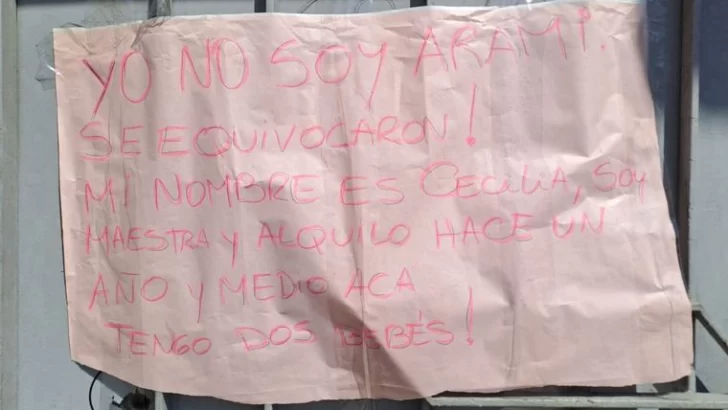 YO NO SOY ARAMI.
SE EQUIVOCARON!
MI NOMBRE ES CECILIA, SOY
MAESTRA Y ALQUILO HACE UN
AÑO Y MEDIO ACA
TENGO DOS BEBÉS!